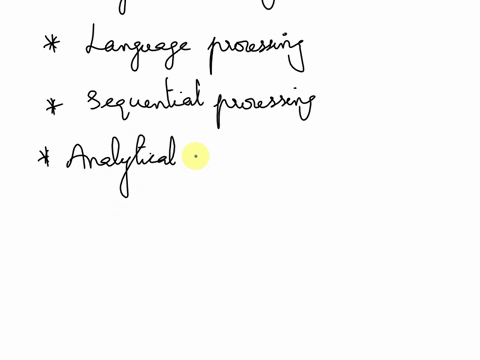 * Language processing
* Sequential processing
* Analytical